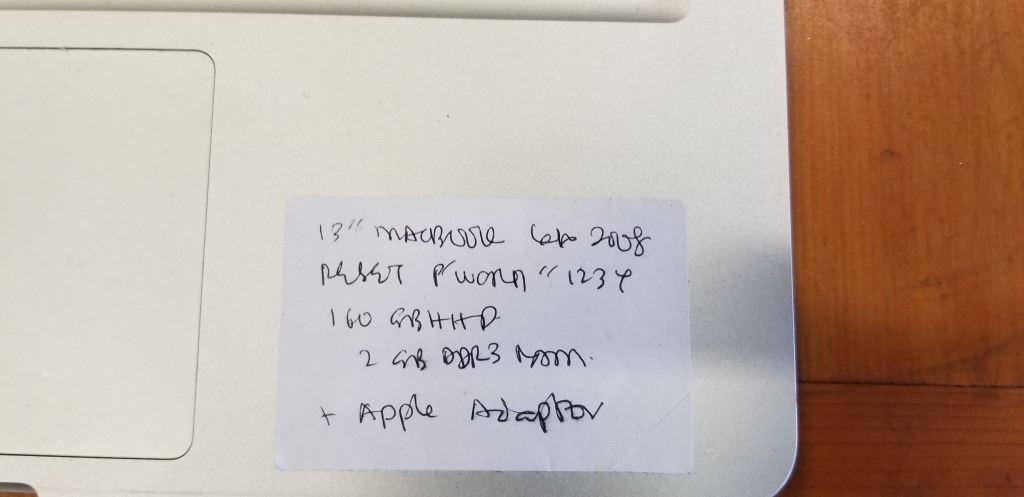 13" MACBOOK late 2008
RESET P'WORD "1234
160 GB HHD
2 GB DDR3 RAM.
+ Apple Adaptor